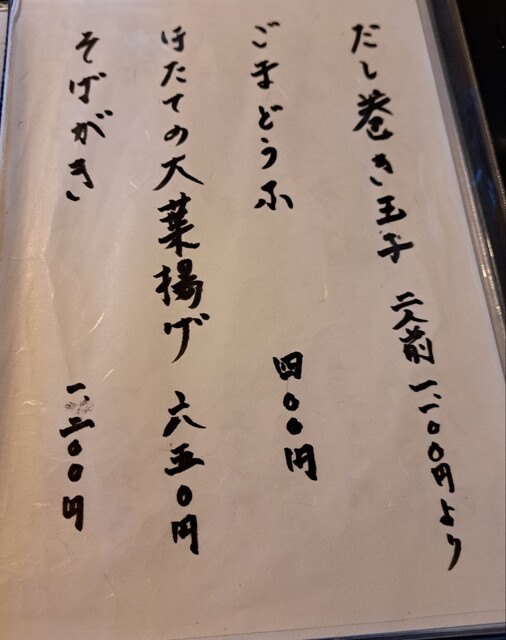 だし巻き玉子 二人前 一、一〇〇円より
ごまどうふ 四〇〇円
ほたての大葉揚げ 六五〇円
そばがき 一、二〇〇円